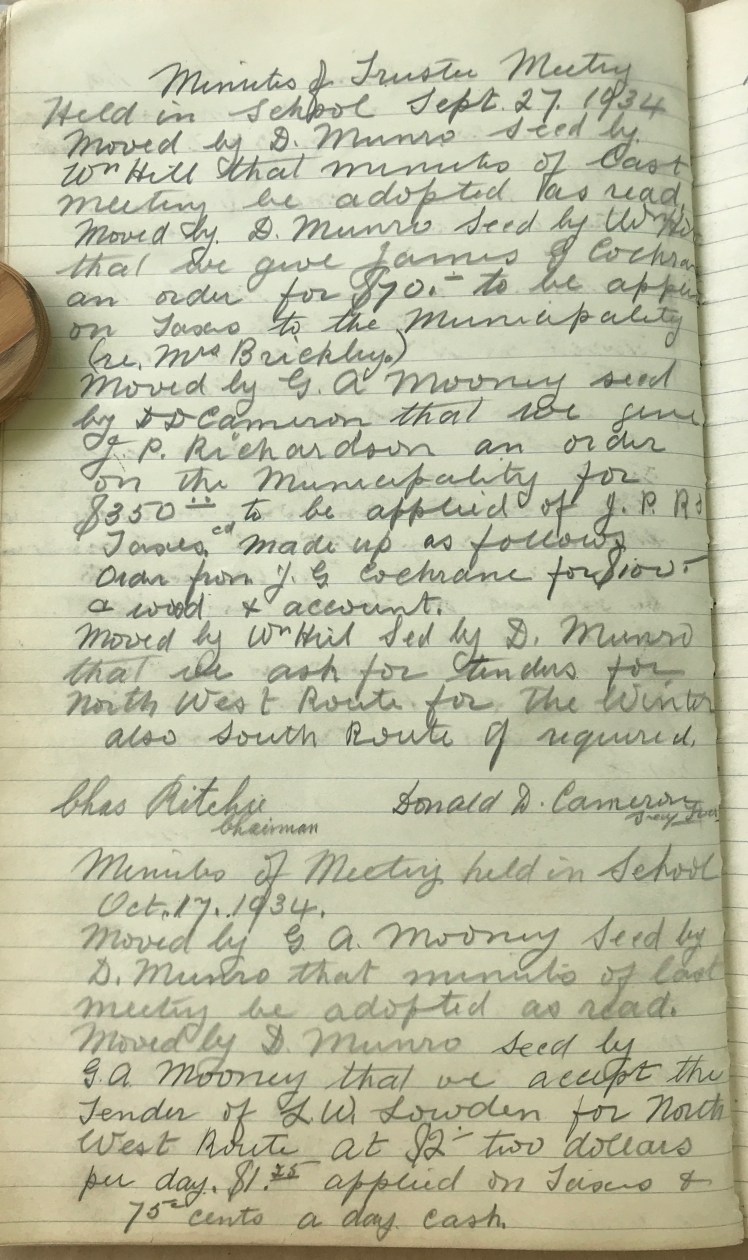 Minutes of Trustee Meeting
Held in School Sept. 27. 1934
Moved by D. Munro Secd by
Wm Hill that minutes of Last
meeting be adopted as read.
Moved by D. Munro Secd by Wm
that we give James G Cochran
an order for $70.- to be
on Taxes to the Municipality
(re. Mrs Brickley.)
Moved by G. A Mooney secd
by D D Cameron that we give
J. P. Richardson an order
on the Municipality for
$350.00 to be applied of J. P. Rs
Taxes. made up as follows
Order from J. G Cochrane for $100.-
a wood & account.
Moved by Wm Hill Secd by D. Munro
that we ask for tenders for
North West Route for The Winter
also South Route if required.
Chas Ritchie Donald D. Cameron
Chairman
Minutes of Meeting held in School
Oct. 17. 1934.
Moved by G A. Mooney Secd by
D. Munro that minutes of last
meeting be adopted as read.
Moved by D. Munro Secd by
G.A. Mooney that we accept the
Tender of L.W. Lowden for North
West Route at $2.- two dollars
per day. $1.25 applied on Taxes &
75c cents a day cash.